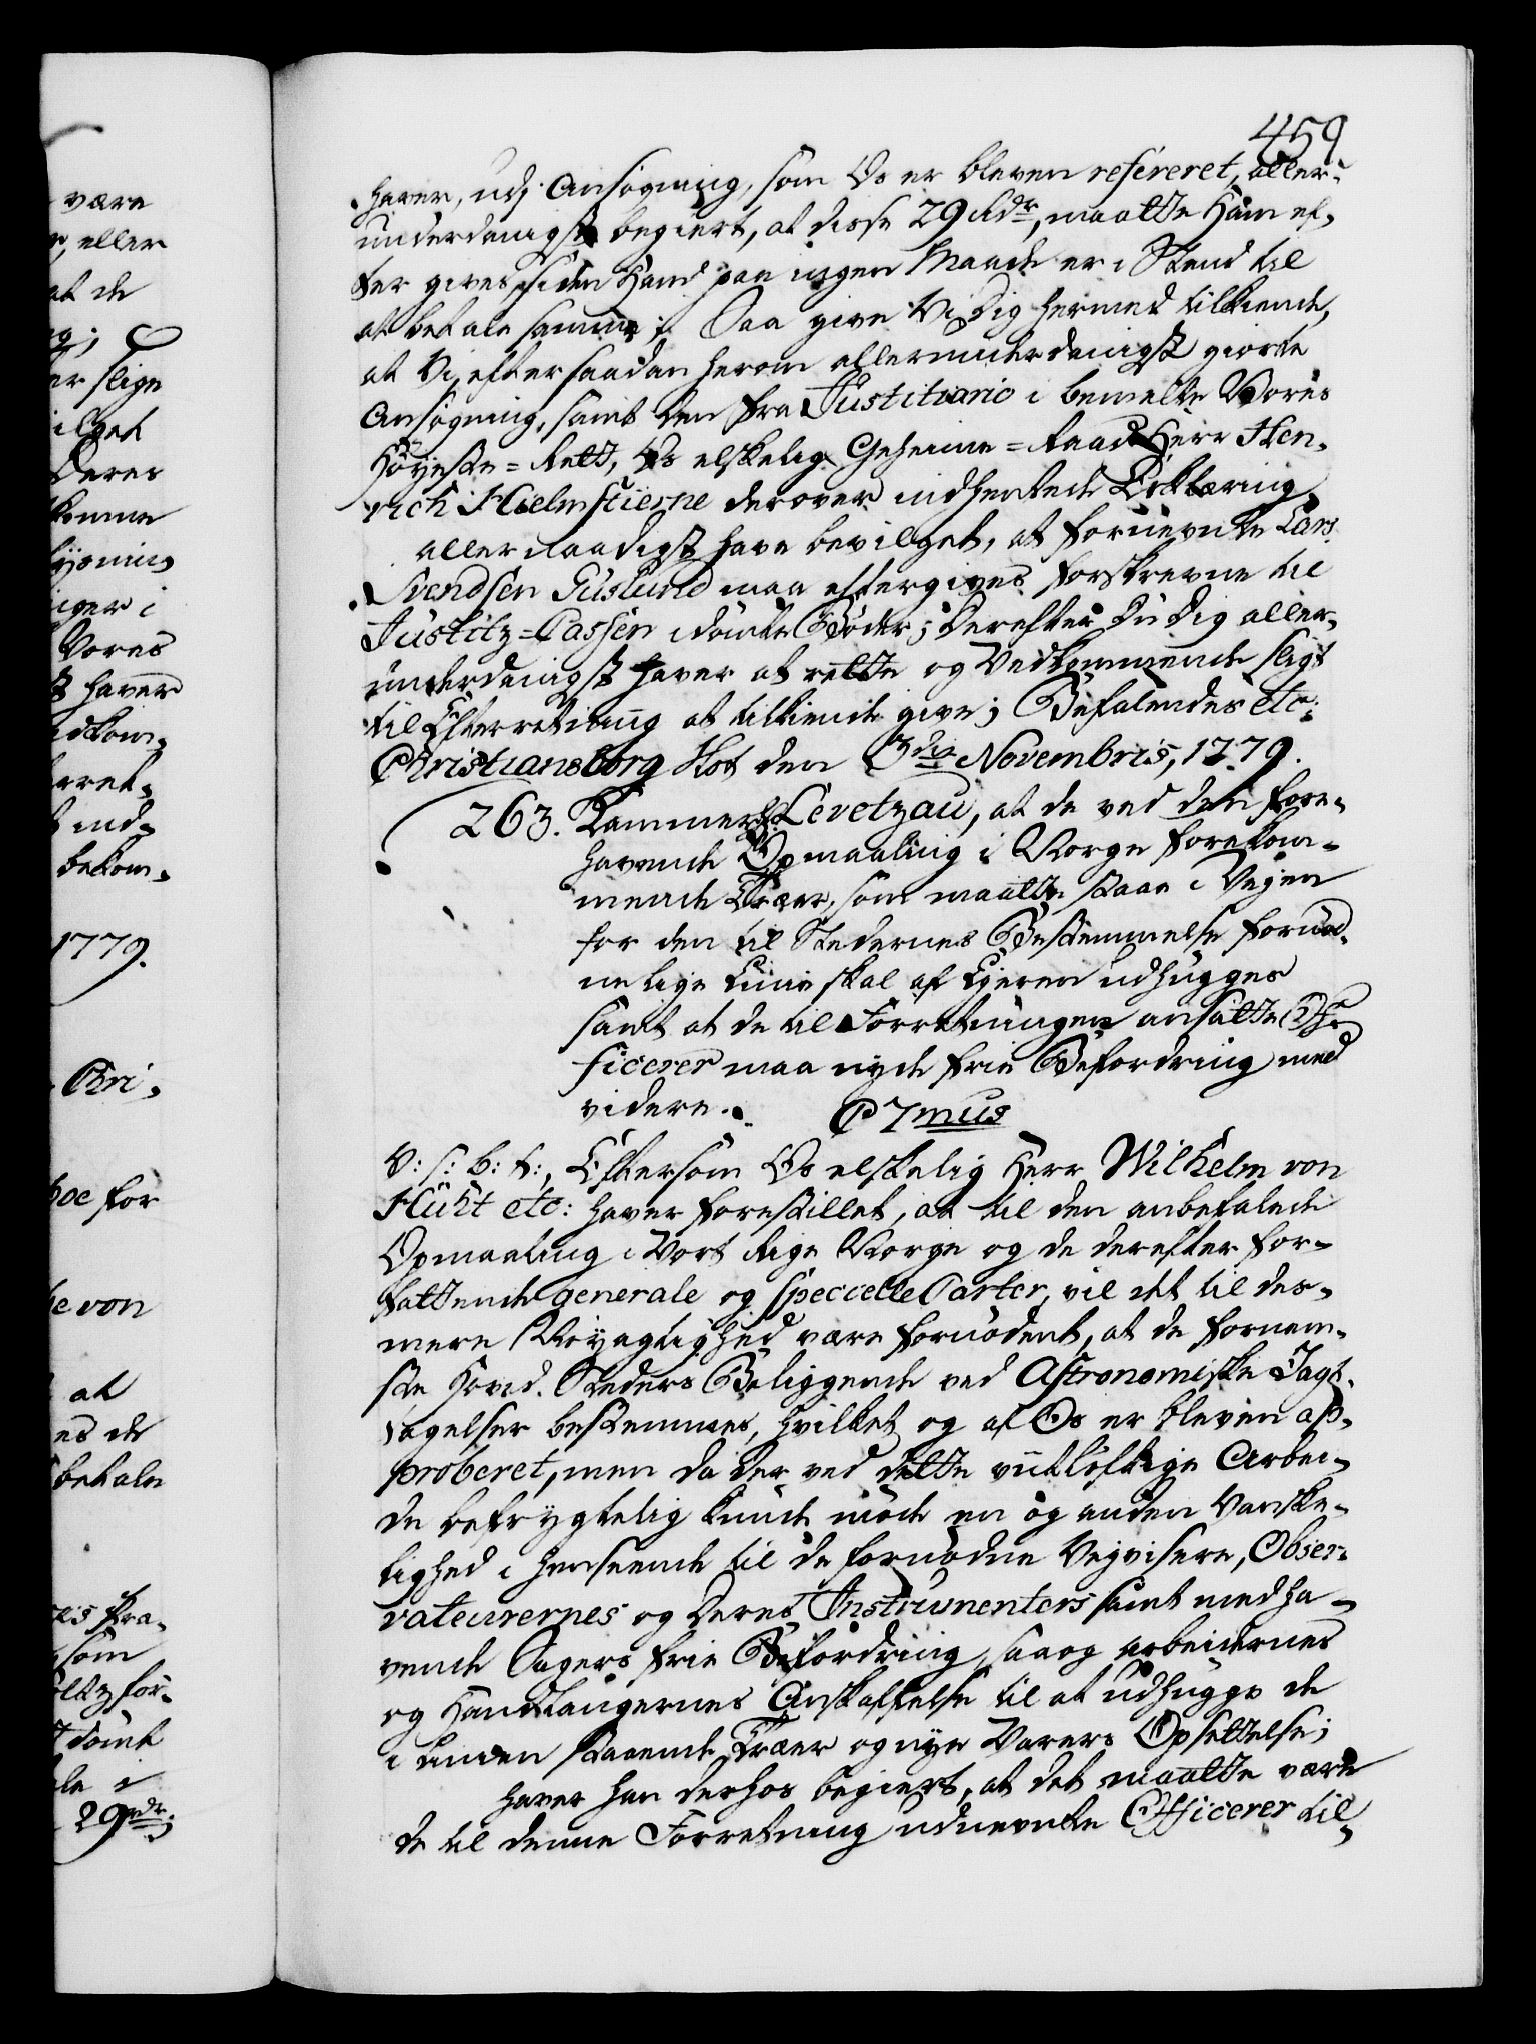 459
haver, udj Ansøgning, som Os er bleven refereret, aller-
underdanigst begiert, at disse 29 Rdr, maatte Ham ef-
ter gives, siden Hand paa ingen Maade er i Stand til
at betale samme; Saa give Vi Dig hermed tilkiende,
at Vi, efter saadan herom allerunderdanigst giorte
Ansøgning, samt den fra Justitiario i bemelte Vores
Høyeste-Rett, Os elskelig Geheime-Raad Herr Hen-
rich Hielmstierne derover indhentede Erklæring,
allernaadigst have bevilget, at fornevnte Lars
Svendsen Guslund maa eftergives forskrevne til
Justitz-Cassen idømte Bøder; Derefter Du Dig aller-
underdanigst haver at rette og Vedkommende sligt
til Efterretning at tilkiende give; Befalendes etc:
Christiansborg Slot den 3die Novembris, 1779.
263. Kammerh: Levetzau, at de ved den fore-
havende Opmaaling i Norge forekom-
mende Træer, som maatte staae i Vejen
for den til Stedernes Bestemmelse fornød-
ne lige Linie skal af Ejeren udhugges
samt at de til Forretningen ansatte Of-
ficerer maa nyde frie Befordring med
videre.. C 7mus
V: s: b: t:, Eftersom Os elskelig Herr Wilhelm von
Huht etc: haver forestillet, at til den anbefalede
Opmaaling i Vort Rige Norge og de derefter for-
fattende generale og specielle Carter, vil det til des-
mere Nøyagtighed være fornødent, at de fornem-
ste Hoved-Steders Beliggende ved Astronomiske Jagt-
tagelser bestemmes, hvilket og af Os er bleven ap-
proberet, men da der ved dette vitløftige Arbei-
de befrygtelig kunde møde en og anden Vanske-
lighed i Henseende til de fornødne Vejvisere, Obser-
vateurernes og deres Instrumenters samt medha-
vende Sagers frie Befordring, saa og Arbeidernes
og Handlangernes Anskaffelse til at udhugge de
i Linien staaende Træer og nye Varers Opsettelse;
haver han derhos begiert, at det maatte være
de til denne Forretning udnevnte Officerer til-